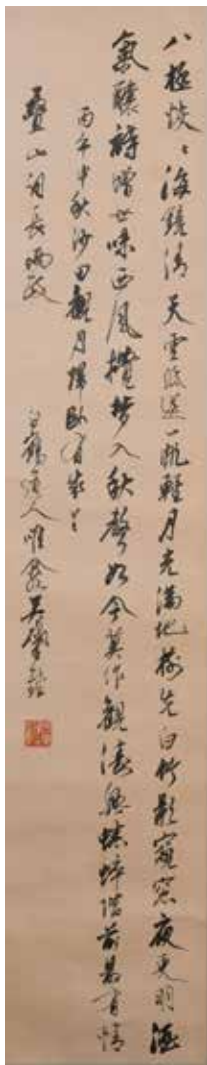 八極淡淡海鏡清天雲低送一帆輕月光滿地揚先白竹影窺窓夜更明酒
氣醺詩增世味西風攪夢入秋聲如今莫作觀濤興蟋蟀階前最有情
丙午中秋沙田觀月歸臥有感
疊山詞長兩政
白鶴